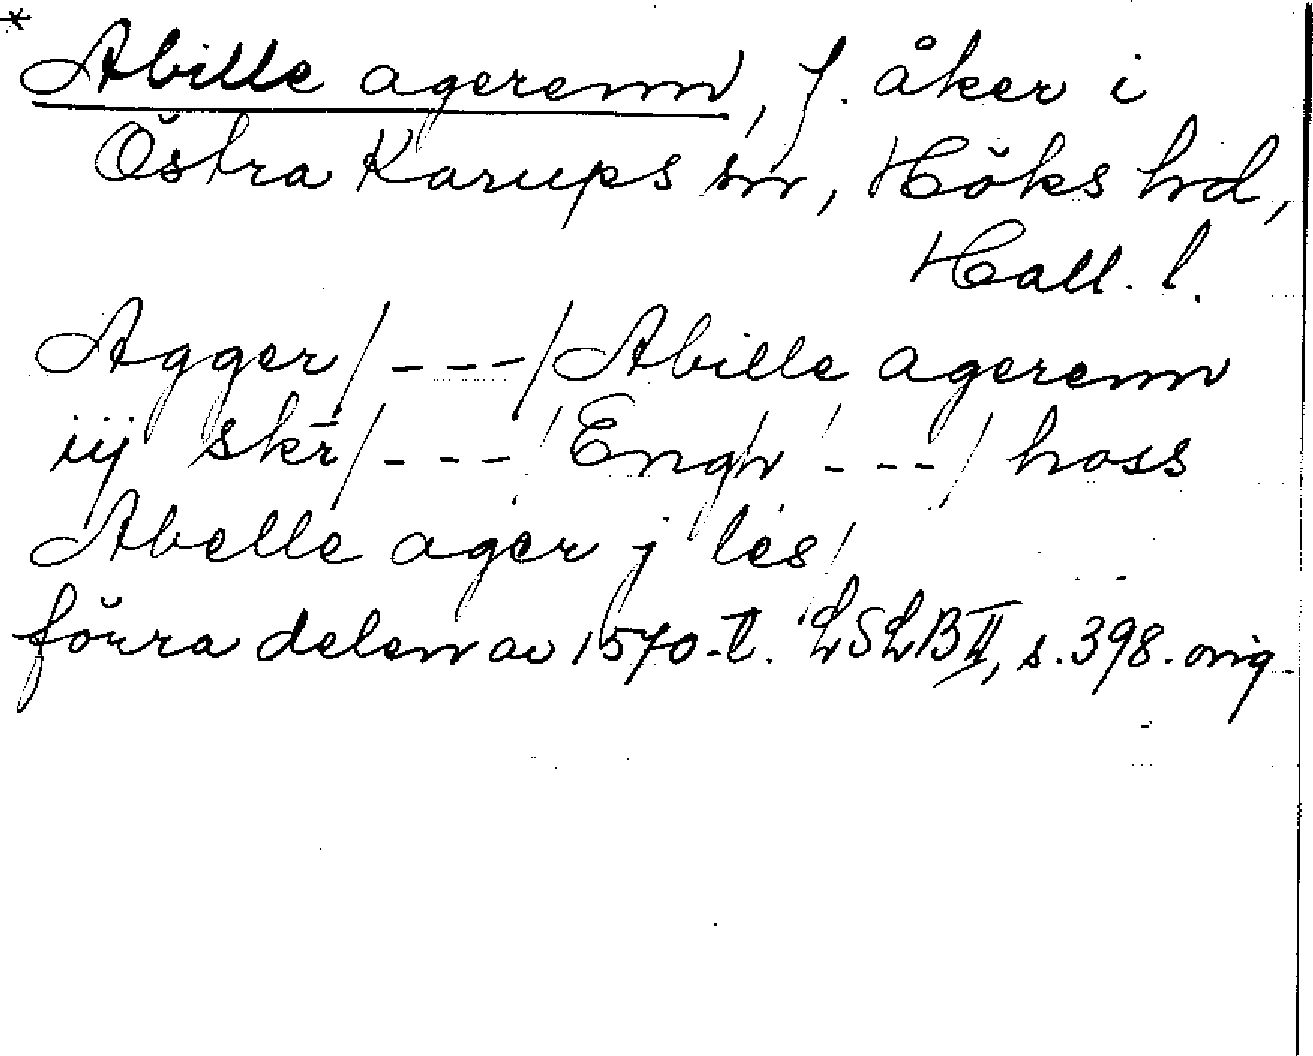 * Abille agerenn, f. åker i
Östra Karups sn, Höks hd,
Hall. l.
Agger/ - - - /Abille agerenn
iij skr̄/ - - - / Engh/ - - - / hoss
Abelle ager j les/
förra delen av 1570-t. LSLB II, s. 398. orig.